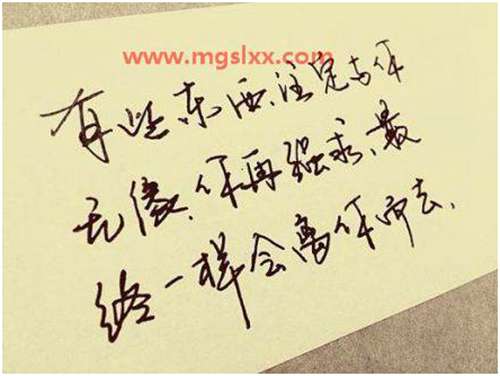 www.mgslxx.com
有些东西,注定与你
无缘,你再强求,最
终一样会离你而去,